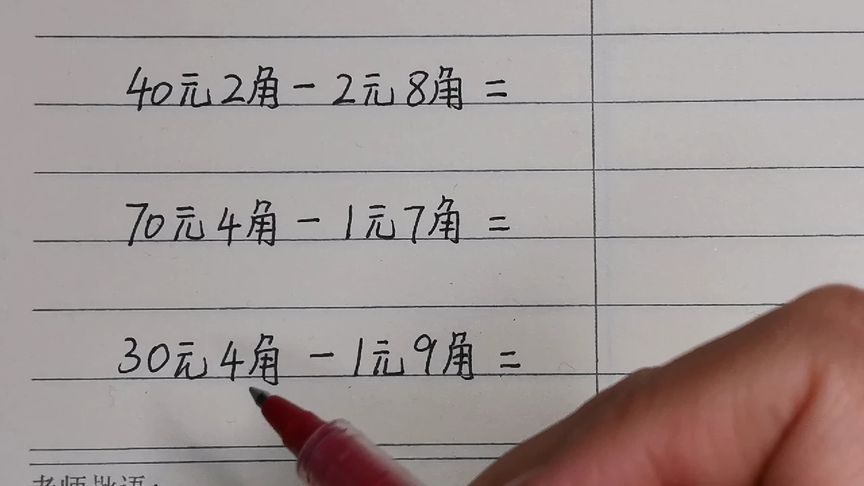 40元2角-2元8角=
70元4角-1元7角=
30元4角-1元9角=
老师批语: